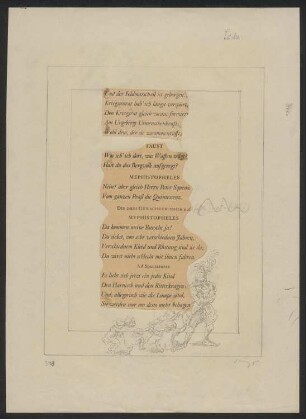 Und der Feldmarschall ist geborgen.
Kriegsunrat hab' ich längst verspürt,
Den Kriegsrat gleich voraus formiert
Aus Urgebirgs Urmenschenkraft;
Wohl dem, der sie zusammenrafft.
FAUST
Was seh' ich dort, was Waffen trägt?
Hast du das Bergvolk aufgeregt?
MEPHISTOPHELES
Nein! aber gleich Herrn Peter Squenz
Vom ganzen Praß die Quintessenz.
DIE DREI GEWALTIGEN
MEPHISTOPHELES
Da kommen meine Bursche ja!
Du siehst, von sehr verschiednen Jahren,
Verschiednem Kleid und Rüstung sind sie da;
Du wirst nicht schlecht mit ihnen fahren.
Ad Spectatores
Es liebt sich jetzt ein jedes Kind
Den Harnisch und den Ritterkragen;
Und, allegorisch wie die Lumpe sind,
Sie werden nur um desto mehr behagen.